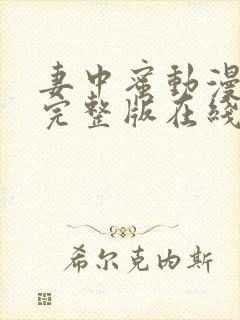 妻中蜜動漫
完整版在綫
希尔克内斯